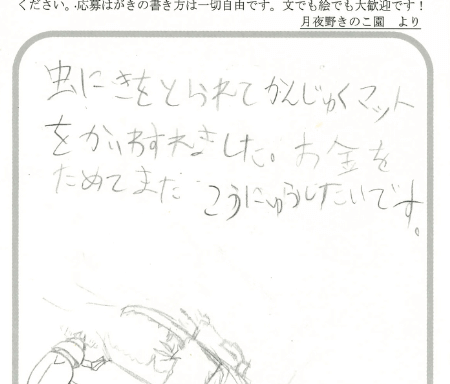 ください。応募はがきの書き方は一切自由です。文でも絵でも大歓迎です！
月夜野きのこ園　より
虫にきをとられてかんじゅくマット
をかいわすれました。お金を
ためてまたこうにゅうしたいです。